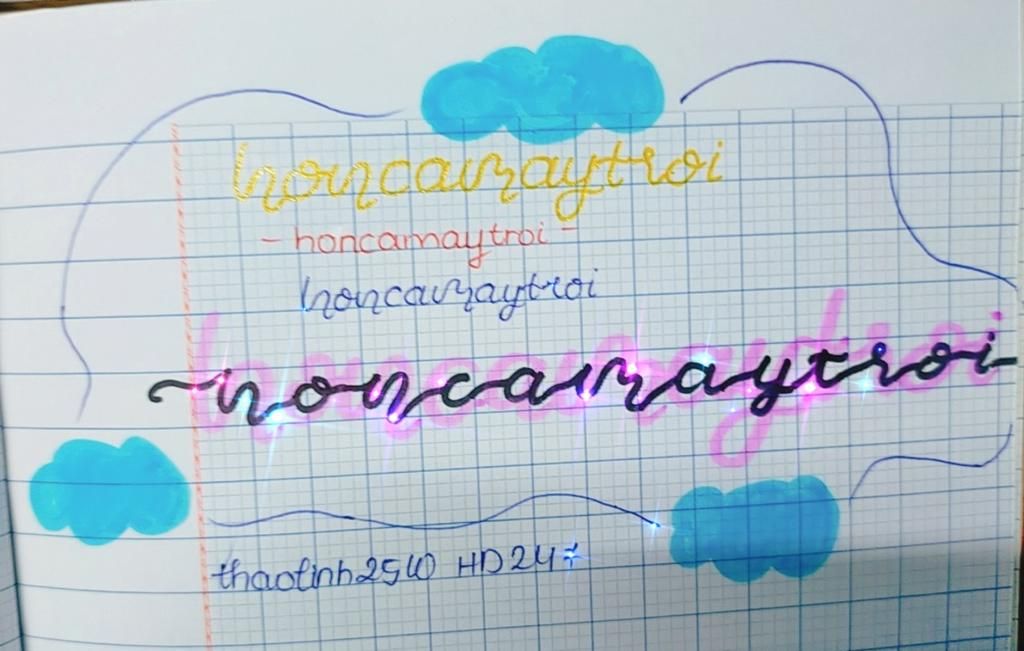 honcamaytroi
- honcamaytroi -
honcamaytroi
honcamaytroi
thaotinh2510 HD247